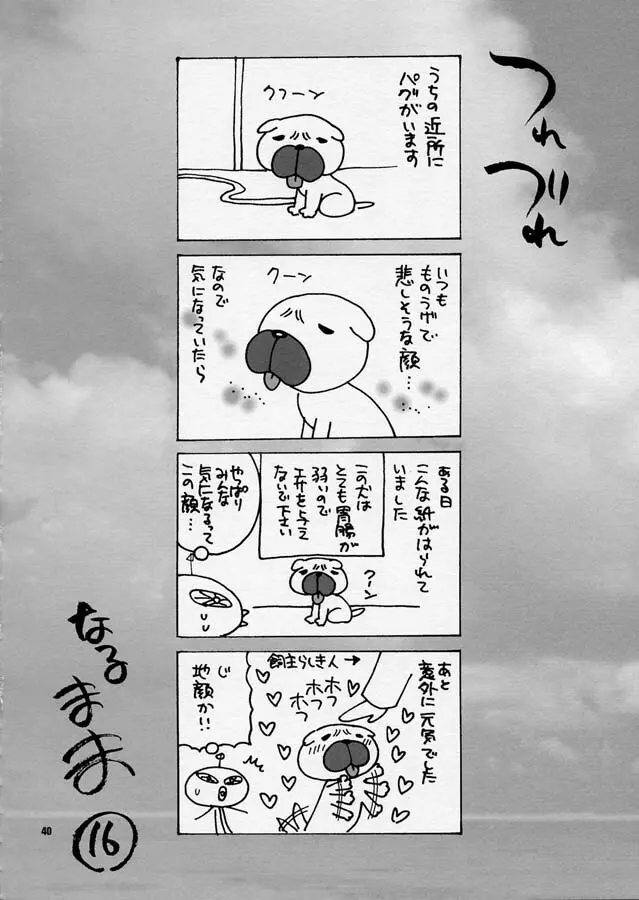 つれ
づれ
なる
まま
⑯
うちの近所に
パグがいます
クゥーン
いつも
ものうげで
悲しそうな顔…
クーン
なので
気になっていたら
ある日
こんな紙がはられて
いました
この犬は
とても胃腸が
弱いので
エサを与え
ないで下さい
クーン
やっぱり
みんな
気になるって
この顔…
あと
意外に元気でした
飼主らしき人→
ホフ
ホフ
ホフ
じ
地顔か!!
40